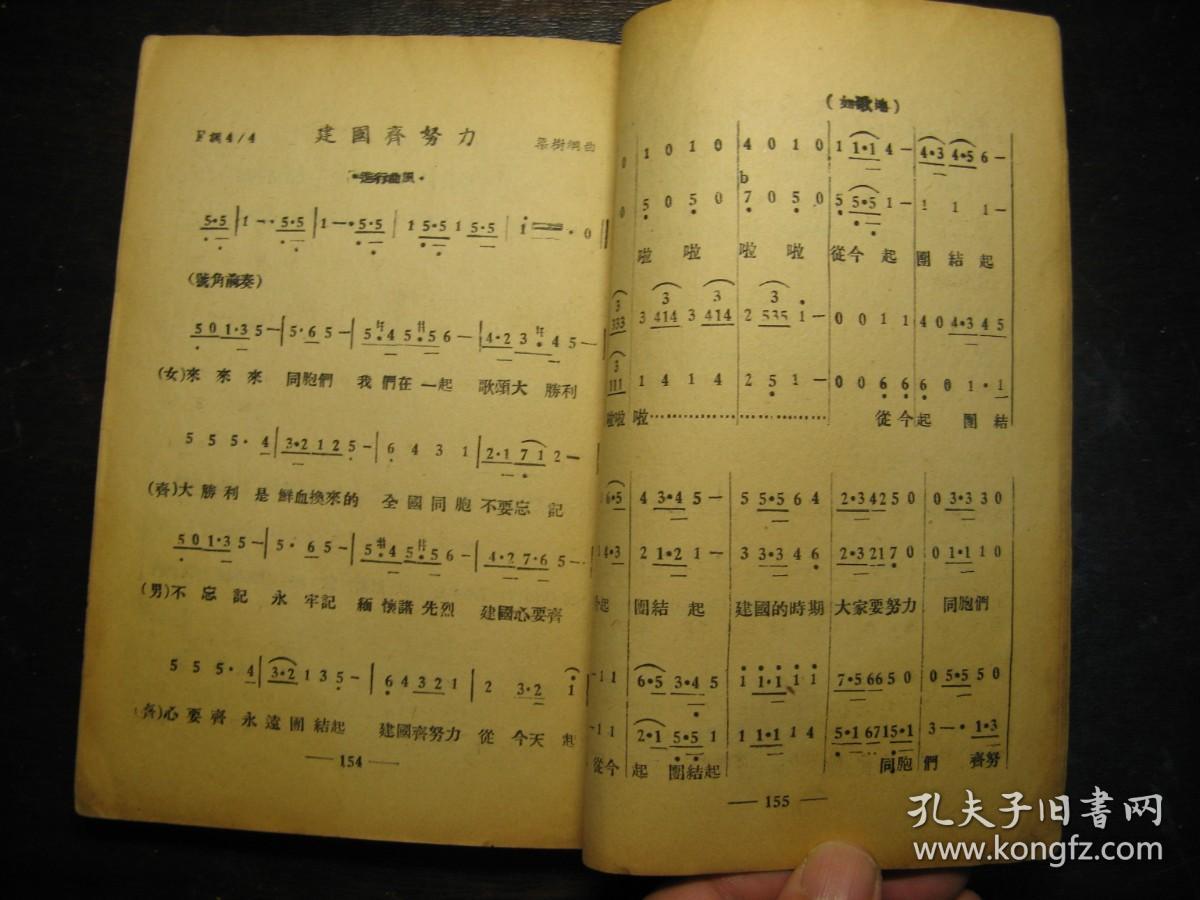 F調4/4 建國齊努力 梁樹綱曲
進行曲風
5•5 | 1 — • 5•5 | 1 — • 5•5 | 1 5•5 1 5•5 | i — • 0
(號角前奏)
5 0 1•3 5 — | 5 • 6 5 — | 5 • #4 5 • #5 6 — | 4•2 3 • 4 5 —
(女)來 來 來 同胞們 我們在一起 歌頌大勝利
5 5 5 • 4 | 3•2 1 2 5 — | 6 4 3 1 | 2•1 7 1 2 —
(齊)大勝利是鮮血換來的 全國同胞不要忘記
5 0 1•3 5 — | 5 • 6 5 — | 5 • #4 5 • #5 6 — | 4•2 7•6 5 —
(男)不忘記 永牢記 緬懷諸先烈 建國心要齊
5 5 5 • 4 | 3•2 1 3 5 • | 6 4 3 2 1 | 2 3•2 1
(齊)心要齊永遠團結起 建國齊努力從今天起
— 154 —
(如歌地)
0 | 1 0 1 0 | 4 0 1 0 | 1 1•1 4 — | 4•3 4•5 6 —
0 | 5 0 5 0 | b7 0 5 0 | 5 5•5 1 — | 1 1 1 —
啦 啦 啦 啦 從今起 團結起
333 | 3 414 3 414 | 2 535 i — | 0 0 1 1 | 4 0 4•3 4 5
111 | 1 4 1 4 | 2 5 1 — | 0 0 6 6 | 6 0 1•1
啦啦 啦 從今起 團結
6•5 | 4 3•4 5 — | 5 5•5 6 4 | 2•3 4 2 5 0 | 0 3•3 3 0
1 4•3 | 2 1•2 1 — | 3 3•3 4 6 | 2•3 2 1 7 0 | 0 1•1 1 0
今起 團結起 建國的時期 大家要努力 同胞們
— 1 1 | 6•5 3•4 5 | 1 1•1 1 1 | 7•5 6 6 5 0 | 0 5•5 5 0
— 1 1 | 2•1 5•5 1 | 1 1•1 1 4 | 5•1 6 7 1 5•1 | 3 — • 1•3
從今 起 團結起 同胞們 齊努
— 155 —
孔夫子旧书网
www.kongfz.com